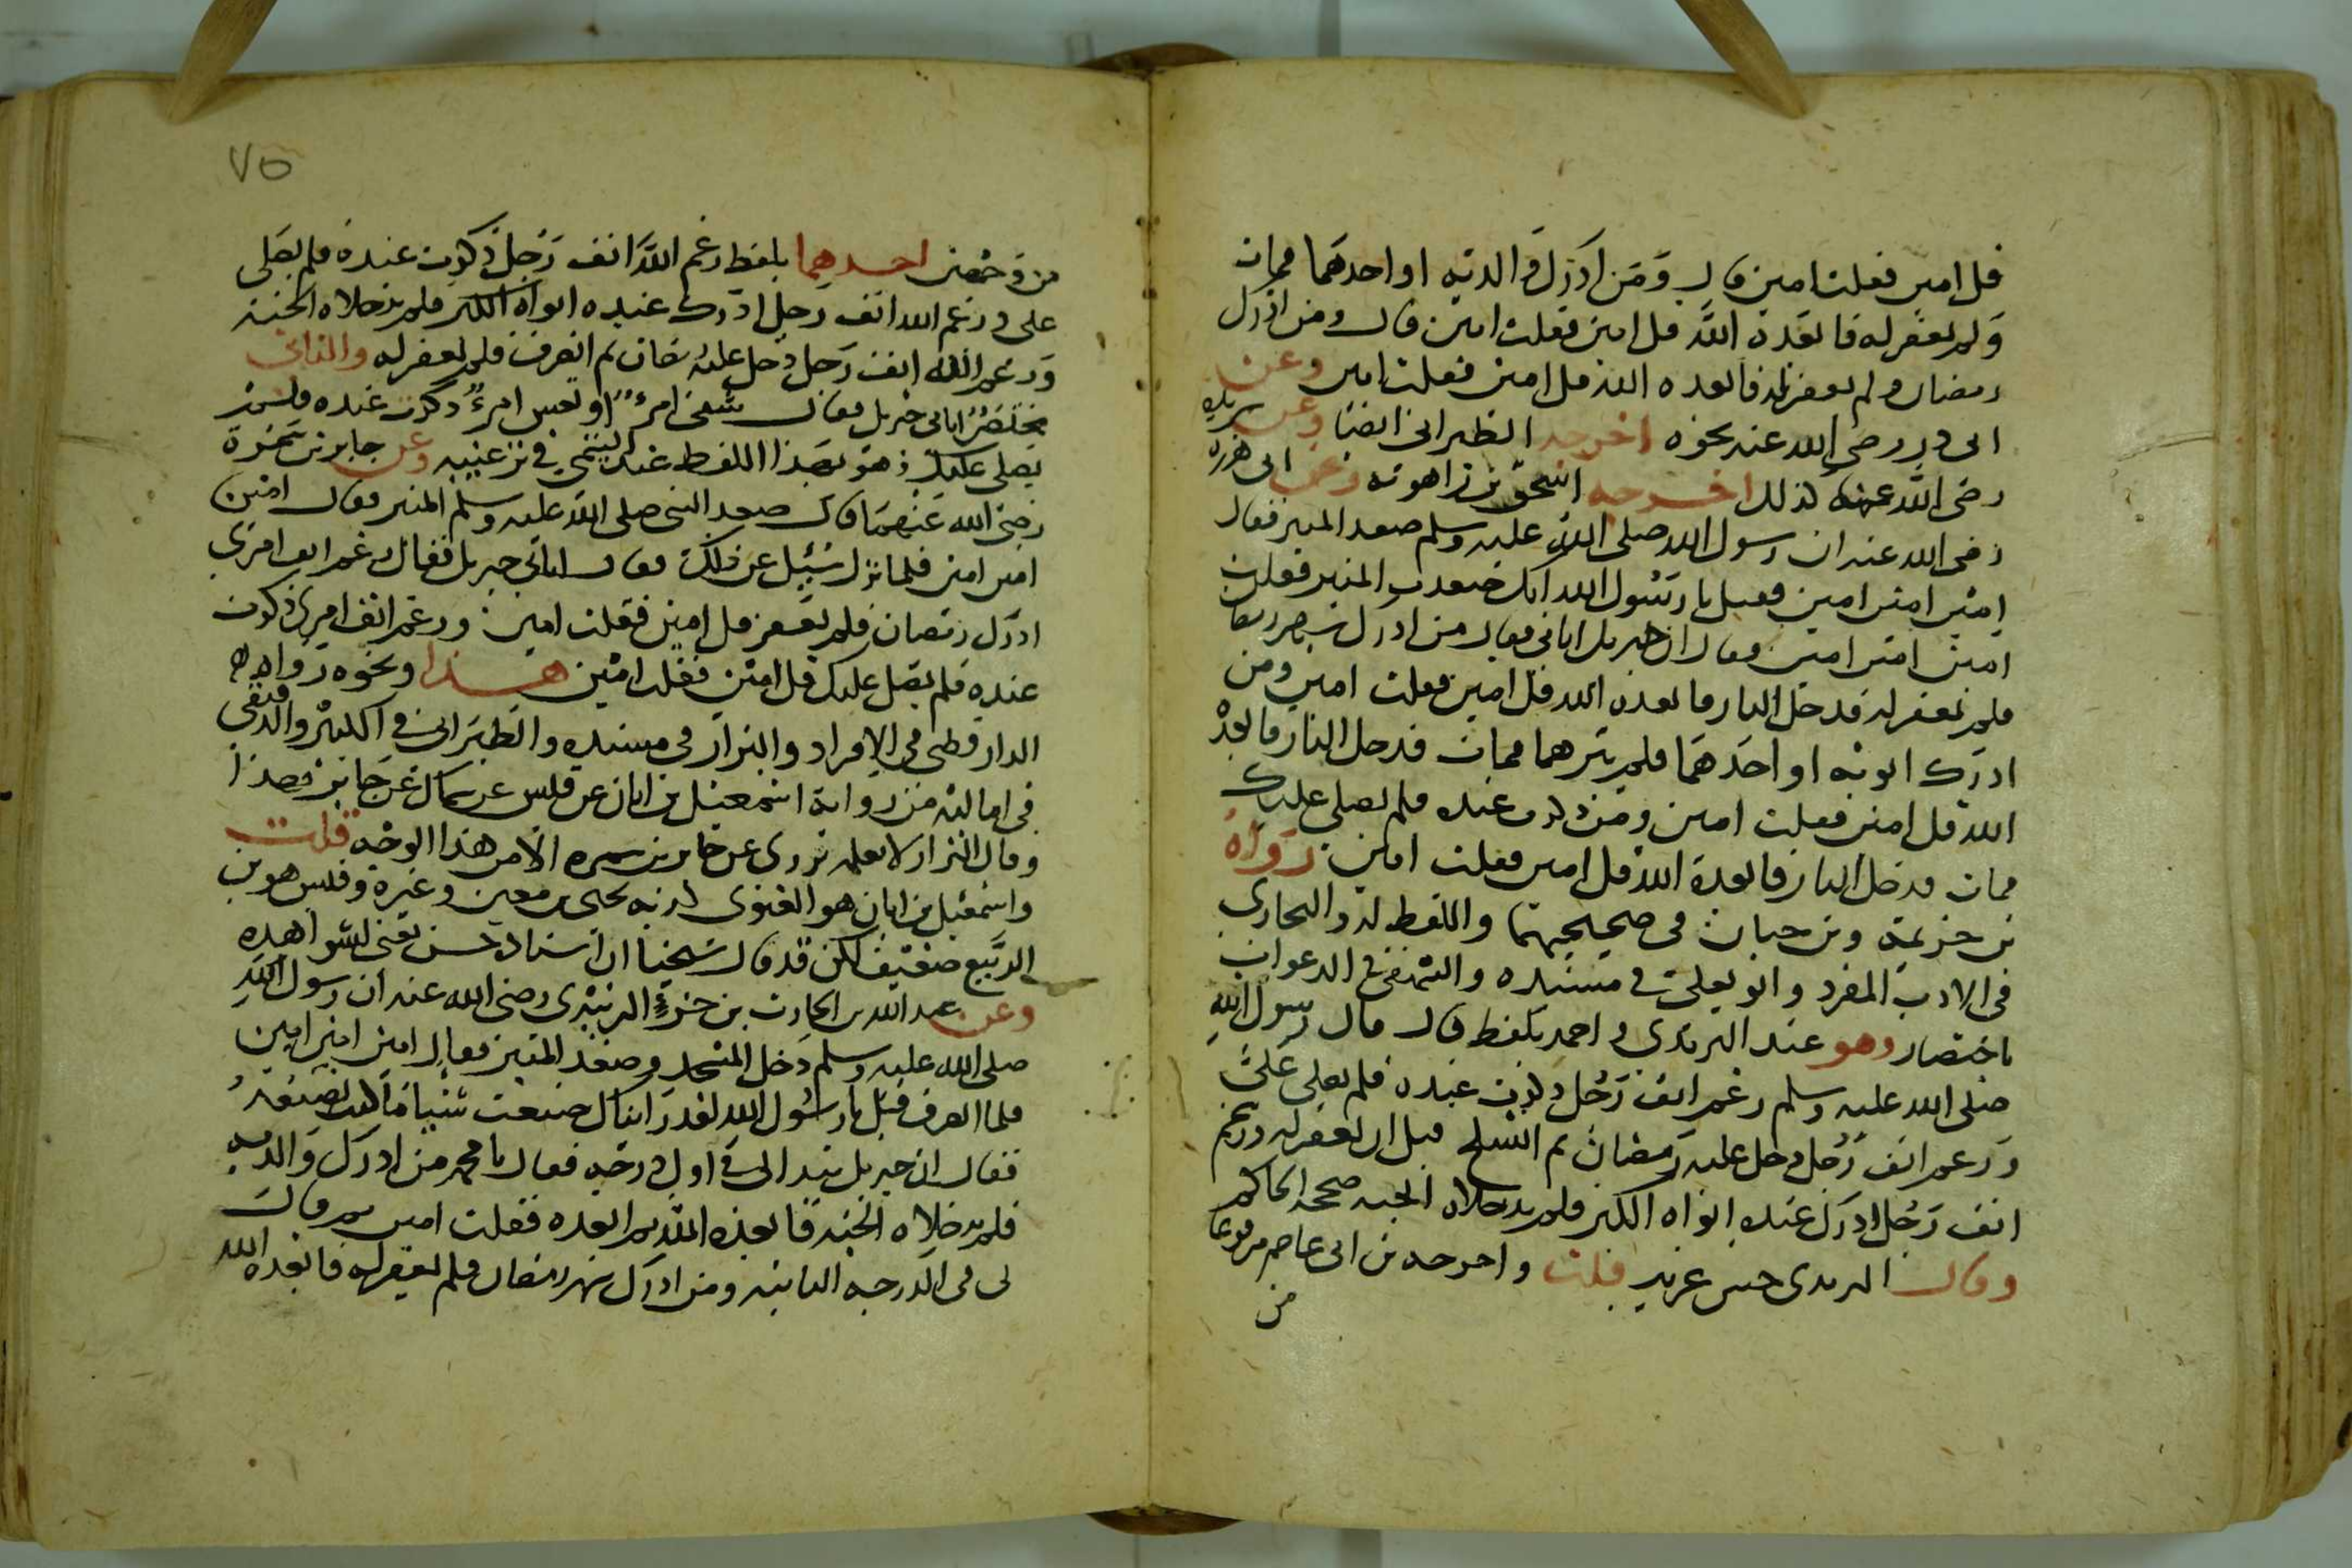 قل امين فقلت امين قال ومن ادرك والديه او احدهما فمات
ولم يغفر له فابعده الله قل امين فقلت امين قال ومن ادرك
رمضان ولم يغفر له فابعده الله قل امين فقلت امين وعن
ابى ذر رضى الله عنه نحوه اخرجه الطبرانى ايضا وعن بريدة
رضى الله عنه كذلك اخرجه اسحق بن راهويه وعن ابى هريرة
رضى الله عنه ان رسول الله صلى الله عليه وسلم صعد المنبر فقال
امين امين امين فقيل يا رسول الله انك صعدت المنبر فقلت
امين امين امين فقال ان جبريل اتانى فقال من ادرك شهر رمضان
فلم يغفر له فدخل النار فابعده الله قل امين فقلت امين ومن
ادرك ابويه او احدهما فلم يبرهما فمات فدخل النار فابعده
الله قل امين فقلت امين ومن ذكرت عنده فلم يصلى عليك
فمات فدخل النار فابعده الله قل امين فقلت امين رواه
بن خزيمة وبن حبان فى صحيحيهما واللفظ له والبخارى
فى الادب المفرد وابو يعلى فى مسنده والبيهقى فى الدعوات
باختصار وهو عند الترمذى واحمد بلفظ قال قال رسول الله
صلى الله عليه وسلم رغم انف رجل ذكرت عنده فلم يصلى على
ورغم انف رجل دخل عليه رمضان ثم انسلخ قبل ان يغفر له ورغم
انف رجل ادرك عنده ابواه الكبر فلم يدخلاه الجنة صححه الحاكم
وقال الترمذى حسن غريب قلت واخرجه بن ابى عاصم مرفوعا
من
٧٥
من وجهين احدهما بلفظ رغم الله انف رجل ذكرت عنده فلم يصلى
على ورغم الله انف رجل ادرك عنده ابواه الكبر فلم يدخلاه الجنة
ورغم الله انف رجل دخل عليه رمضان ثم انصرف فلم يغفر له والثانى
مختصر اتانى جبريل فقال شقى امرء او تعس امرء ذكرت عنده فلم
يصلى عليك وهو بهذا اللفظ عند التيمى فى ترغيبه وعن جابر بن سمرة
رضى الله عنهما قال صعد النبى صلى الله عليه وسلم المنبر فقال امين
امين امين فلما نزل سئل عن ذلك فقال اتانى جبريل فقال رغم انف امرئ
ادرك رمضان فلم يغفر قل امين فقلت امين ورغم انف امرئ ذكرت
عنده فلم يصل عليك قل امين فقلت امين هذا ونحوه رواه
الدارقطنى فى الافراد والبزار فى مسنده والطبرانى فى الكبير والدقيقى
فى اماليه من رواية اسمعيل بن ابان عن قيس عن سماك عن جابر بهذا
وقال البزار لا نعلمه يروى عن جابر بن سمره الا من هذا الوجه قلت
واسمعيل بن ابان هو الغنوى كذبه يحيى بن معين وغيره وقيس هو بن
الربيع ضعيف لكن قد قال شيخنا ان اسناده حسن يعنى لشواهده
وعن عبد الله بن الحارث بن جزء الزبيدى رضى الله عنه ان رسول الله
صلى الله عليه وسلم دخل المسجد وصعد المنبر فقال امين امين امين
فلما انصرف قيل يا رسول الله لقد رايناك صنعت شيئا ما كنت تصنعه
فقال ان جبريل تبدا لى فى اول درجه فقال يا محمد من ادرك والديه
فلم يدخلاه الجنة فابعده الله ثم ابعده فقلت امين ثم قال
لى فى الدرجه الثانيه ومن ادرك شهر رمضان فلم يغفر له فابعده الله